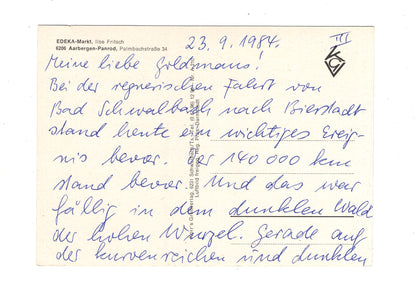 EDEKA-Markt, Ilse Fritsch
6209 Aarbergen-Panrod, Palmbachstraße 34
23.9.1984. III
Meine liebe Goldmaus!
Bei der regnerischen Fahrt von
Bad Schwalbach nach Bierstadt
stand heute ein wichtiges Ereig-
nis bevor. Der 140 000 km
stand bevor. Und das war
fällig in dem dunklen Wald
der hohen Wurzel. Gerade auf
der kurvenreichen und dunklen